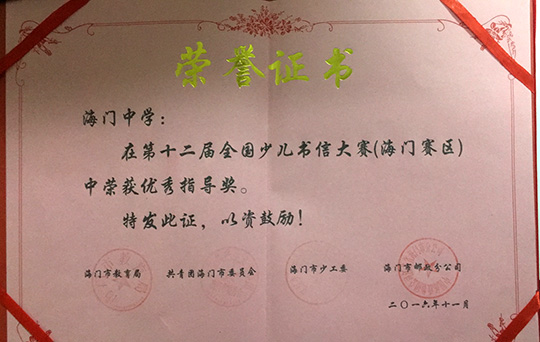 荣誉证书
海门中学：
在第十二届全国少儿书信大赛(海门赛区)
中荣获优秀指导奖。
特发此证，以资鼓励！
海门市教育局 共青团海门市委员会 海门市少工委 海门市邮政分公司
二〇一六年十一月